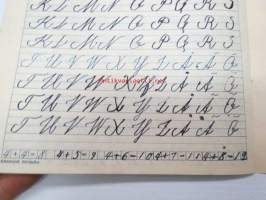 K L M N O P Q R S
K L M N O P Q R S
K L M N O P Q R S
T U V W X Y Z Å Ä Ö
T U V W X Y Z Å Ä Ö
T U V W X Y Z Å Ä Ö
T U V W X Y Z Å Ä Ö
4+4=8 4+5=9 4+6=10 4+7=11 4+8=12